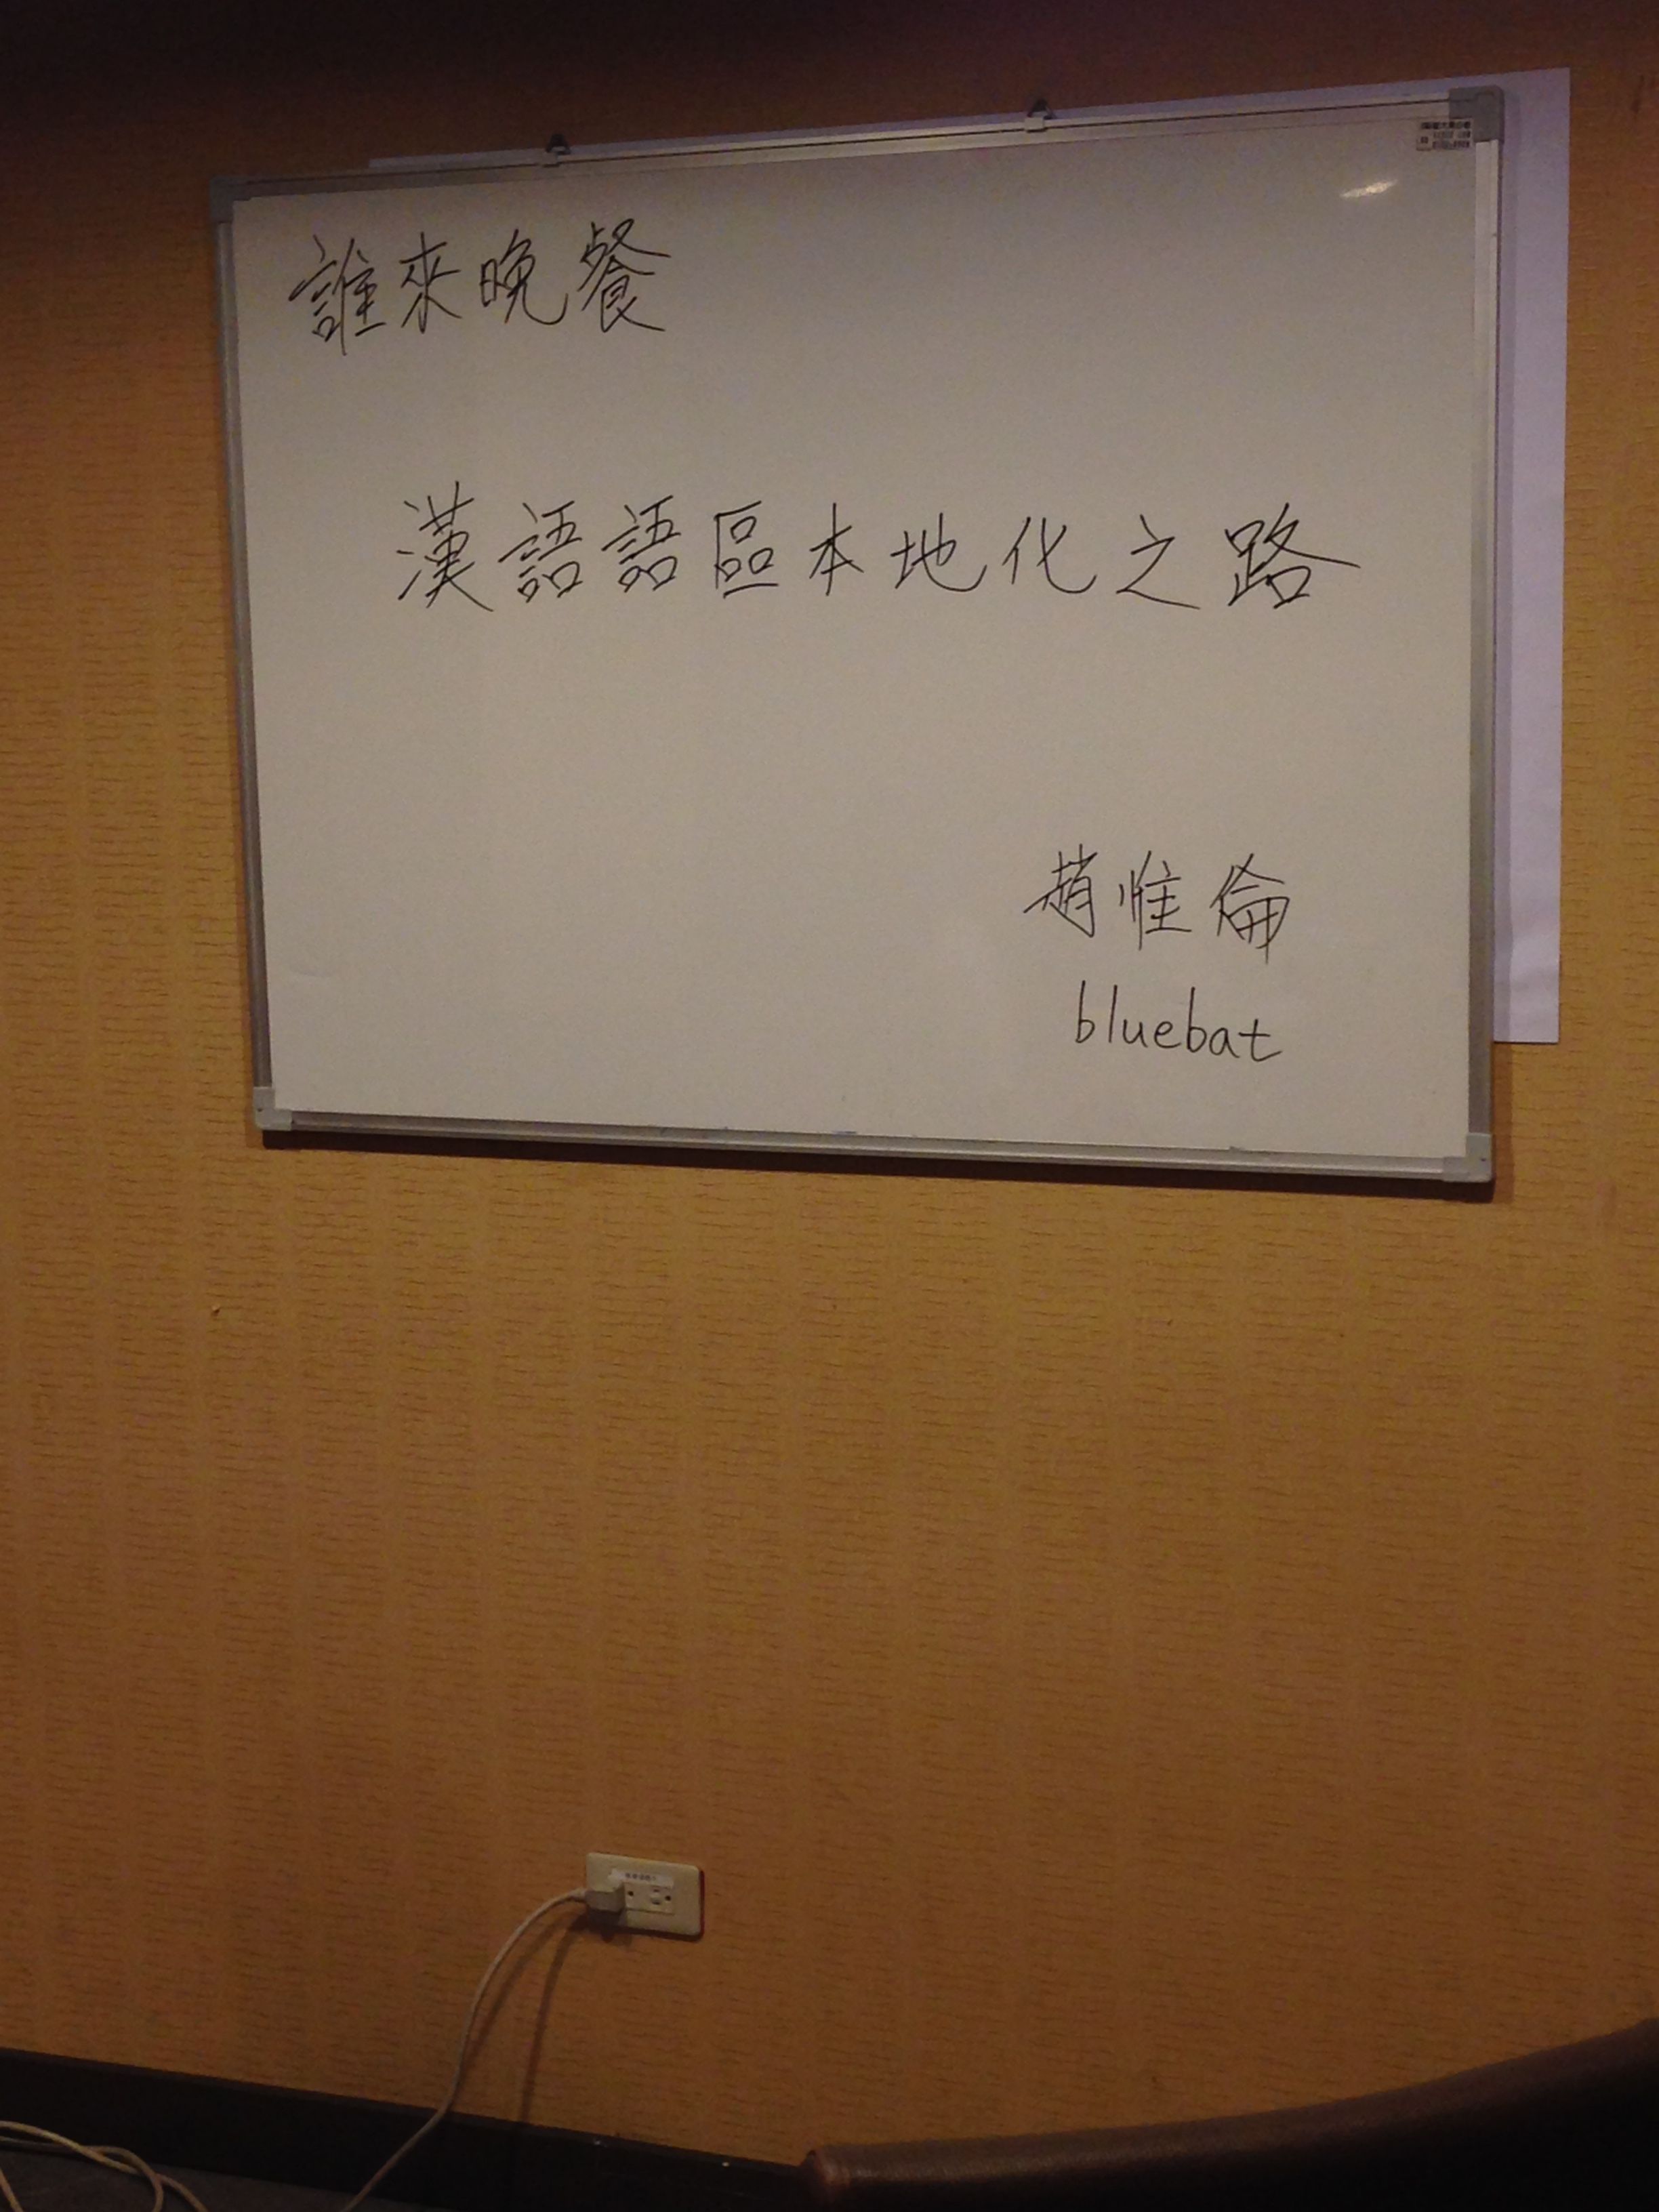 誰來晚餐
漢語語區本地化之路
趙惟倫
bluebat